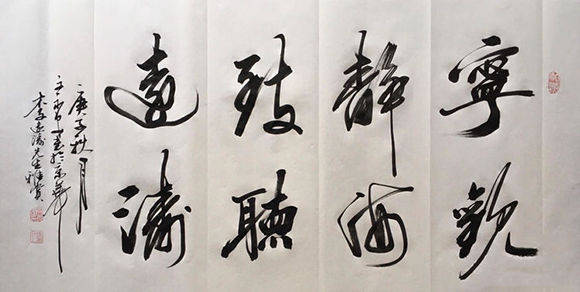 寧靜致遠
觀海聽濤
庚子秋月
李遠濤先生雅賞